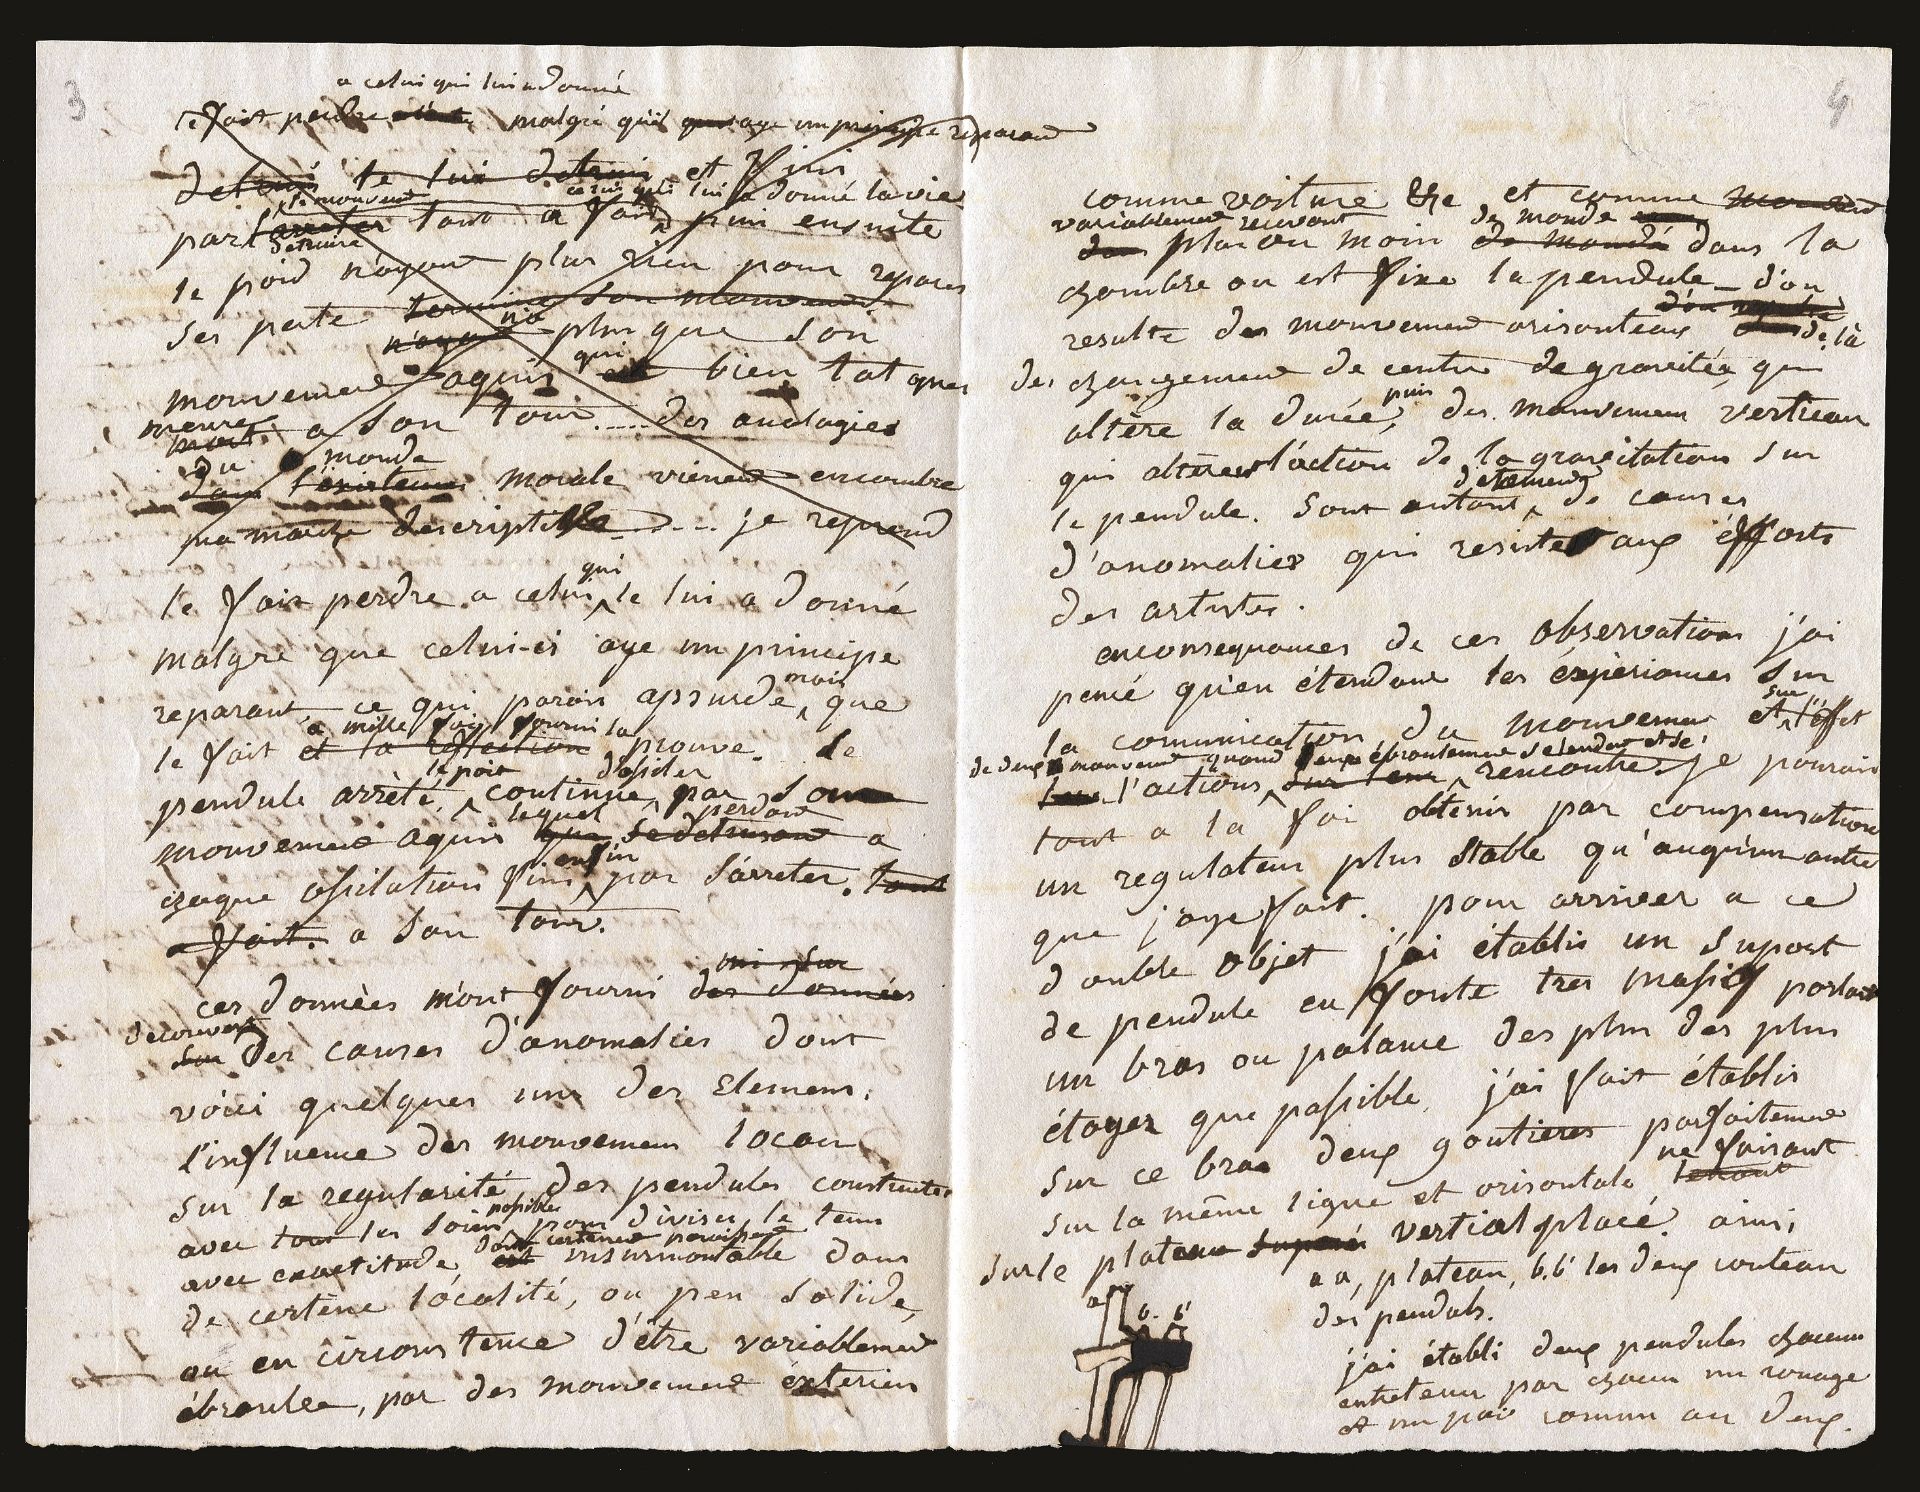 3
a celui qui lui a donné
le fait perdre malgré qu'il aye un principe reparant
detruis le lui detruis et fini
le mouvement celui qui lui a donné la vie
par l'arreter tout a fait puis ensuite
detruire
le poid n'ayant plus rien pour reparer
ses perte termine son mouvement
n'ayant n'a plus que son
mouvement aquis qui est bien tot que
meure
mort a son tour..... des analogies
du monde
dans l'existence morale vienent encombre
ma marche descriptible .... je reprend
le fait perdre a celui qui le lui a donné
malgré que celui-ci aye un principe
reparant, ce qui parois apsurde, mais que
a mille fois fourni la
le fait et la reflection prouve. le
le poit d'osider
pendule arrèté, continue par son
lequel perdant
mouvement aquis que se detruisant a
chaque osilation fini enfin par s'arreter. tout
a fait. a son tour.
mi sur
ces données m'ont fourni des données
decouvert
sur des causes d'anomalies dont
voici quelques uns des Elemens.
l'influence des mouvemens locau
sur la regularité des pendules construites
avec tous les soins possibles pour diviser le tems
avec exactitude dont certenes paroisse
est insurmontable dans
de certène localité, ou peu solide,
ou en circonstence d'étre variablement
ébranlée, par des mouvement éxterieur
4
comme voiture &c et comme
variablement recevant de monde
dans plus ou moin de monde dans la
chambre ou est fixe la pendule_ d'ou
d'ou
resulte des mouvement orisonteaux de là
des changement de centre de gravitée, qui
altère la durée, puis des mouvemens verticau
qui altèrent l'action de la gravitation sur
d'élémens
le pendule. sont autant de causes
d'anomalies qui resiste aux éfforts
des artistes.
enconsequances de ces observations j'ai
pensé qu'en étendant les éxperiances sur
la comunication du mouvement et sur l'éffet
de deux mouvement quand leurs ébranlement s'etendent et se
l'actions sur leur rencontre. je pourais
tout a la foi obtenir par compensation
un regulateur plus stable qu'auqu'un autre
que j'aye fait. pour arriver a ce
double objet j'ai établis un suport
de pendule en fonte tres massif portant
un bras ou patance des plus des plus
étayez que possible, j'ai fait établir
sur ce bras deux goutieres parfaitement
ne faisant
sur la même ligne et orisontale tenant
sur le plateau suposé vertical placé ainsi
a a, plateau, b.b' les deux couteau
des penduls.
a b. b'
j'ai établi deux pendules chacun
entretenu par chacun un rouage
et un poid comun au deux.